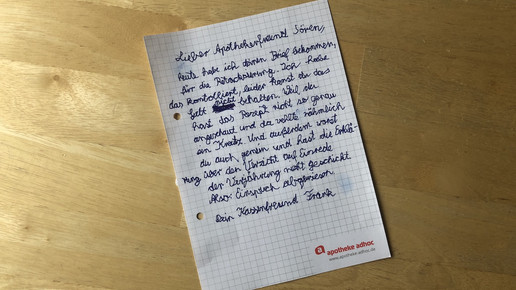 Lieber Apothekenfreund Sören,
heute habe ich deinen Brief bekommen,
für die Retaxierung. Ich habe
das kontrolliert, leider kanst du das
Geld nicht behalten. Weil du
hast das Rezept nicht so genau
angeschaut und da vehlte nähmlich
ein Kreutz. Und außerdem warst
du auch gemein und hast die Erklä-
rung über den Verzicht auf Einrede
der Verjährung nicht geschickt
Also: Einspruch abgewiesen
Dein Kassenfreund Frank
a apotheke adhoc
www.apotheke-adhoc.de